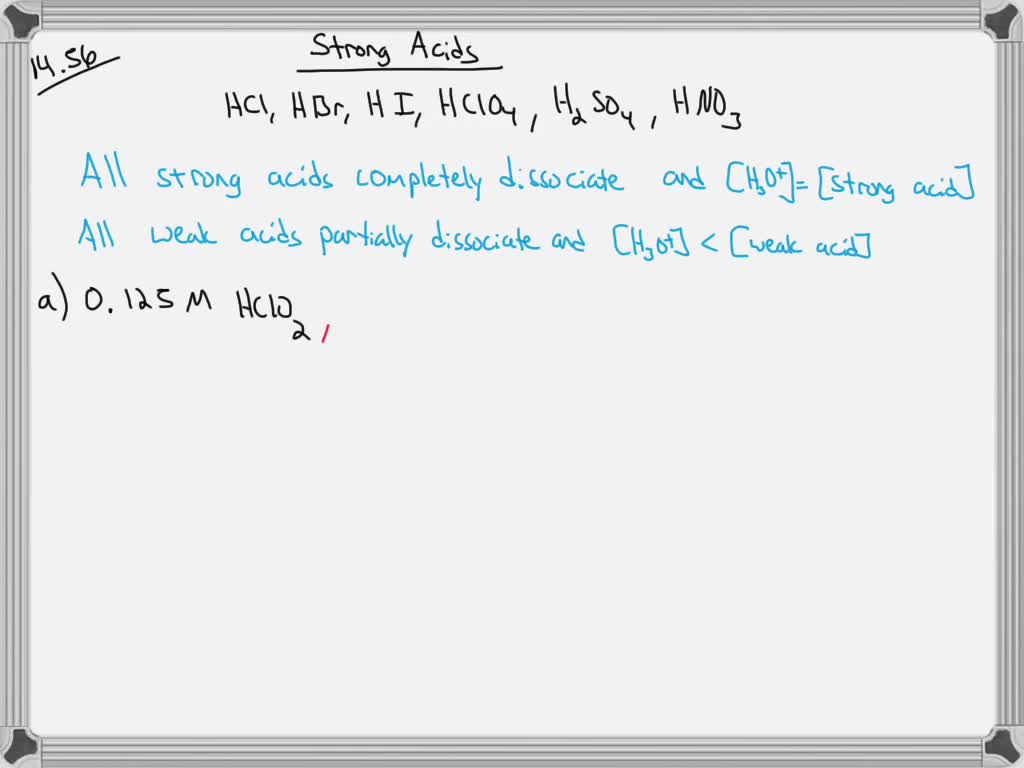 14.56
Strong Acids
HCl, HBr, HI, HClO₄, H₂SO₄, HNO₃
All strong acids completely dissociate and [H₃O⁺]=[strong acid]
All weak acids partially dissociate and [H₃O⁺] < [weak acid]
a) 0.125 M HClO₂